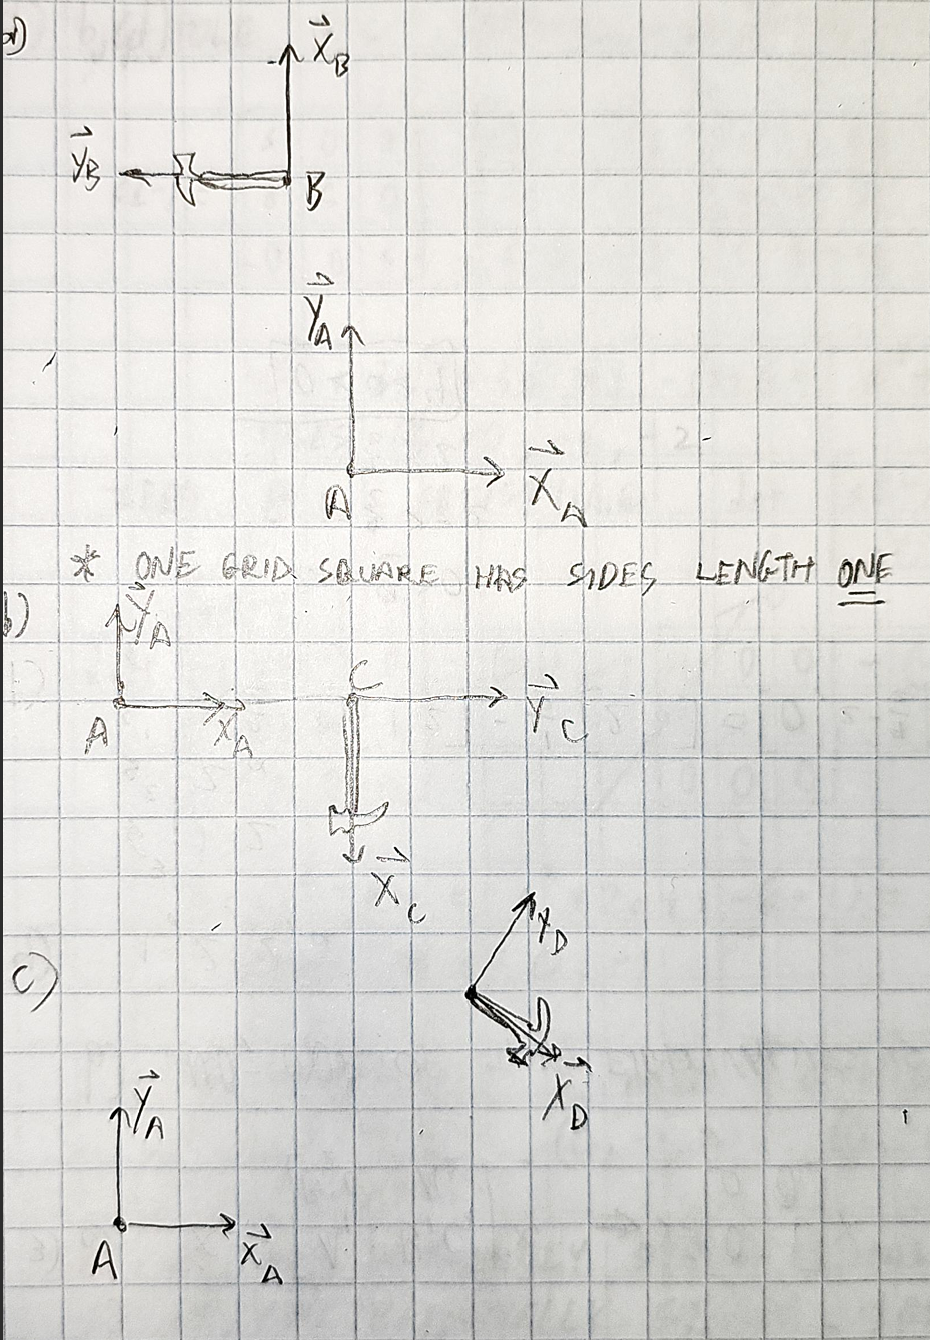 a)
X⃗_B
Y⃗_B
B
Y⃗_A
A
X⃗_A
* ONE GRID SQUARE HAS SIDES LENGTH ONE
b)
Y⃗_A
C
A
X_A
Y⃗_C
X⃗_C
Y_D
c)
X⃗_D
Y⃗_A
A
X⃗_A